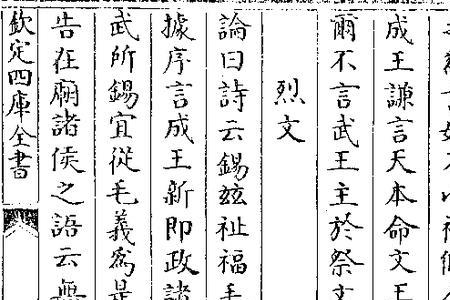 成王謙言天本命文王
爾不言武王主於祭文
烈文
論曰詩云錫兹祉福毛
據序言成王新即政諸
武所錫宜從毛義爲是
告在廟諸侯之語云無
欽定四庫全書